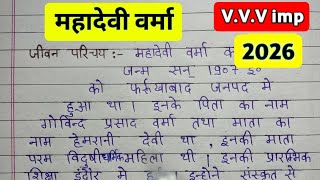 महादेवी वर्मा
V.V.V imp
2026
जीवन परिचय :- महादेवी वर्मा क
जन्म सन् 1907 ई०
को फर्रुखाबाद जनपद मे
हुआ था । इनके पिता का नाम
गोविन्द प्रसाद वर्मा तथा माता का
नाम हेमरानी देवी था , इनकी माता
परम विदुषी धार्मिक महिला थी । इनकी प्रारम्भिक
शिक्षा इंदौर मे इन्होने संस्कृत से